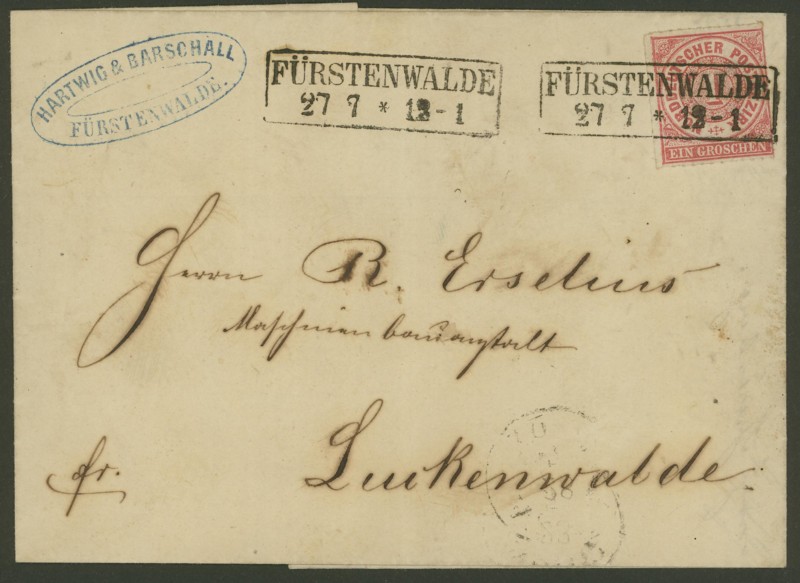 HARTWIG & BARSCHALL
FÜRSTENWALDE.
FÜRSTENWALDE
27 7 * 12-1
FÜRSTENWALDE
27 7 * 12-1
DEUTSCHER POST
BEZIRK
EIN GROSCHEN
Herrn R. Erselius
Maschinenbauanstalt
fr. Luckenwalde